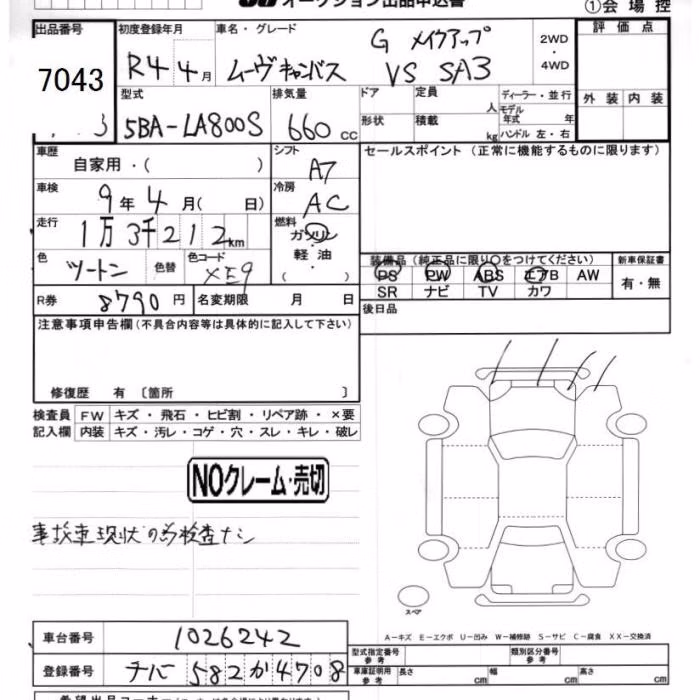 オークション出品申込書
①会場控
出品番号
7043
初度登録年月
R4 4月
車名・グレード
G メイクアップ
ムーヴキャンバス VS SA3
2WD
・
4WD
評価点
外装 内装
型式
5BA-LA800S
排気量
660 cc
ドア
形状
定員 人
積載 kg
ディーラー・並行
モデル年式 年
ハンドル 左・右
車歴
自家用・( )
シフト
A7
セールスポイント(正常に機能するものに限ります)
車検
9年4月( 日)
冷房
AC
走行
1万3千212km
燃料
ガソリン
軽油
( )
色
ツートン
色替
色コード
XE9
装備品(純正品に限り○をつけてください)
PS PW ABS エアB AW
SR ナビ TV カワ
新車保証書
有・無
R券
8790円
名変期限 月 日
後日品
注意事項申告欄(不具合内容等は具体的に記入して下さい)
修復歴 有 〔箇所 〕
検査員 FW キズ・飛石・ヒビ割・リペア跡・×要
記入欄 内装 キズ・汚レ・コゲ・穴・スレ・キレ・破レ
NOクレーム・売切
事故車現状の為検査ナシ
スペア
A-キズ E-エクボ U-凹み W-補修跡 S-サビ C-腐食 XX-交換済
車台番号
1026242
登録番号
チバ 582 か 4708
型式指定番号
参考
類別区分番号
参考
車庫証明用
参考
長さ cm
幅 cm
高さ cm